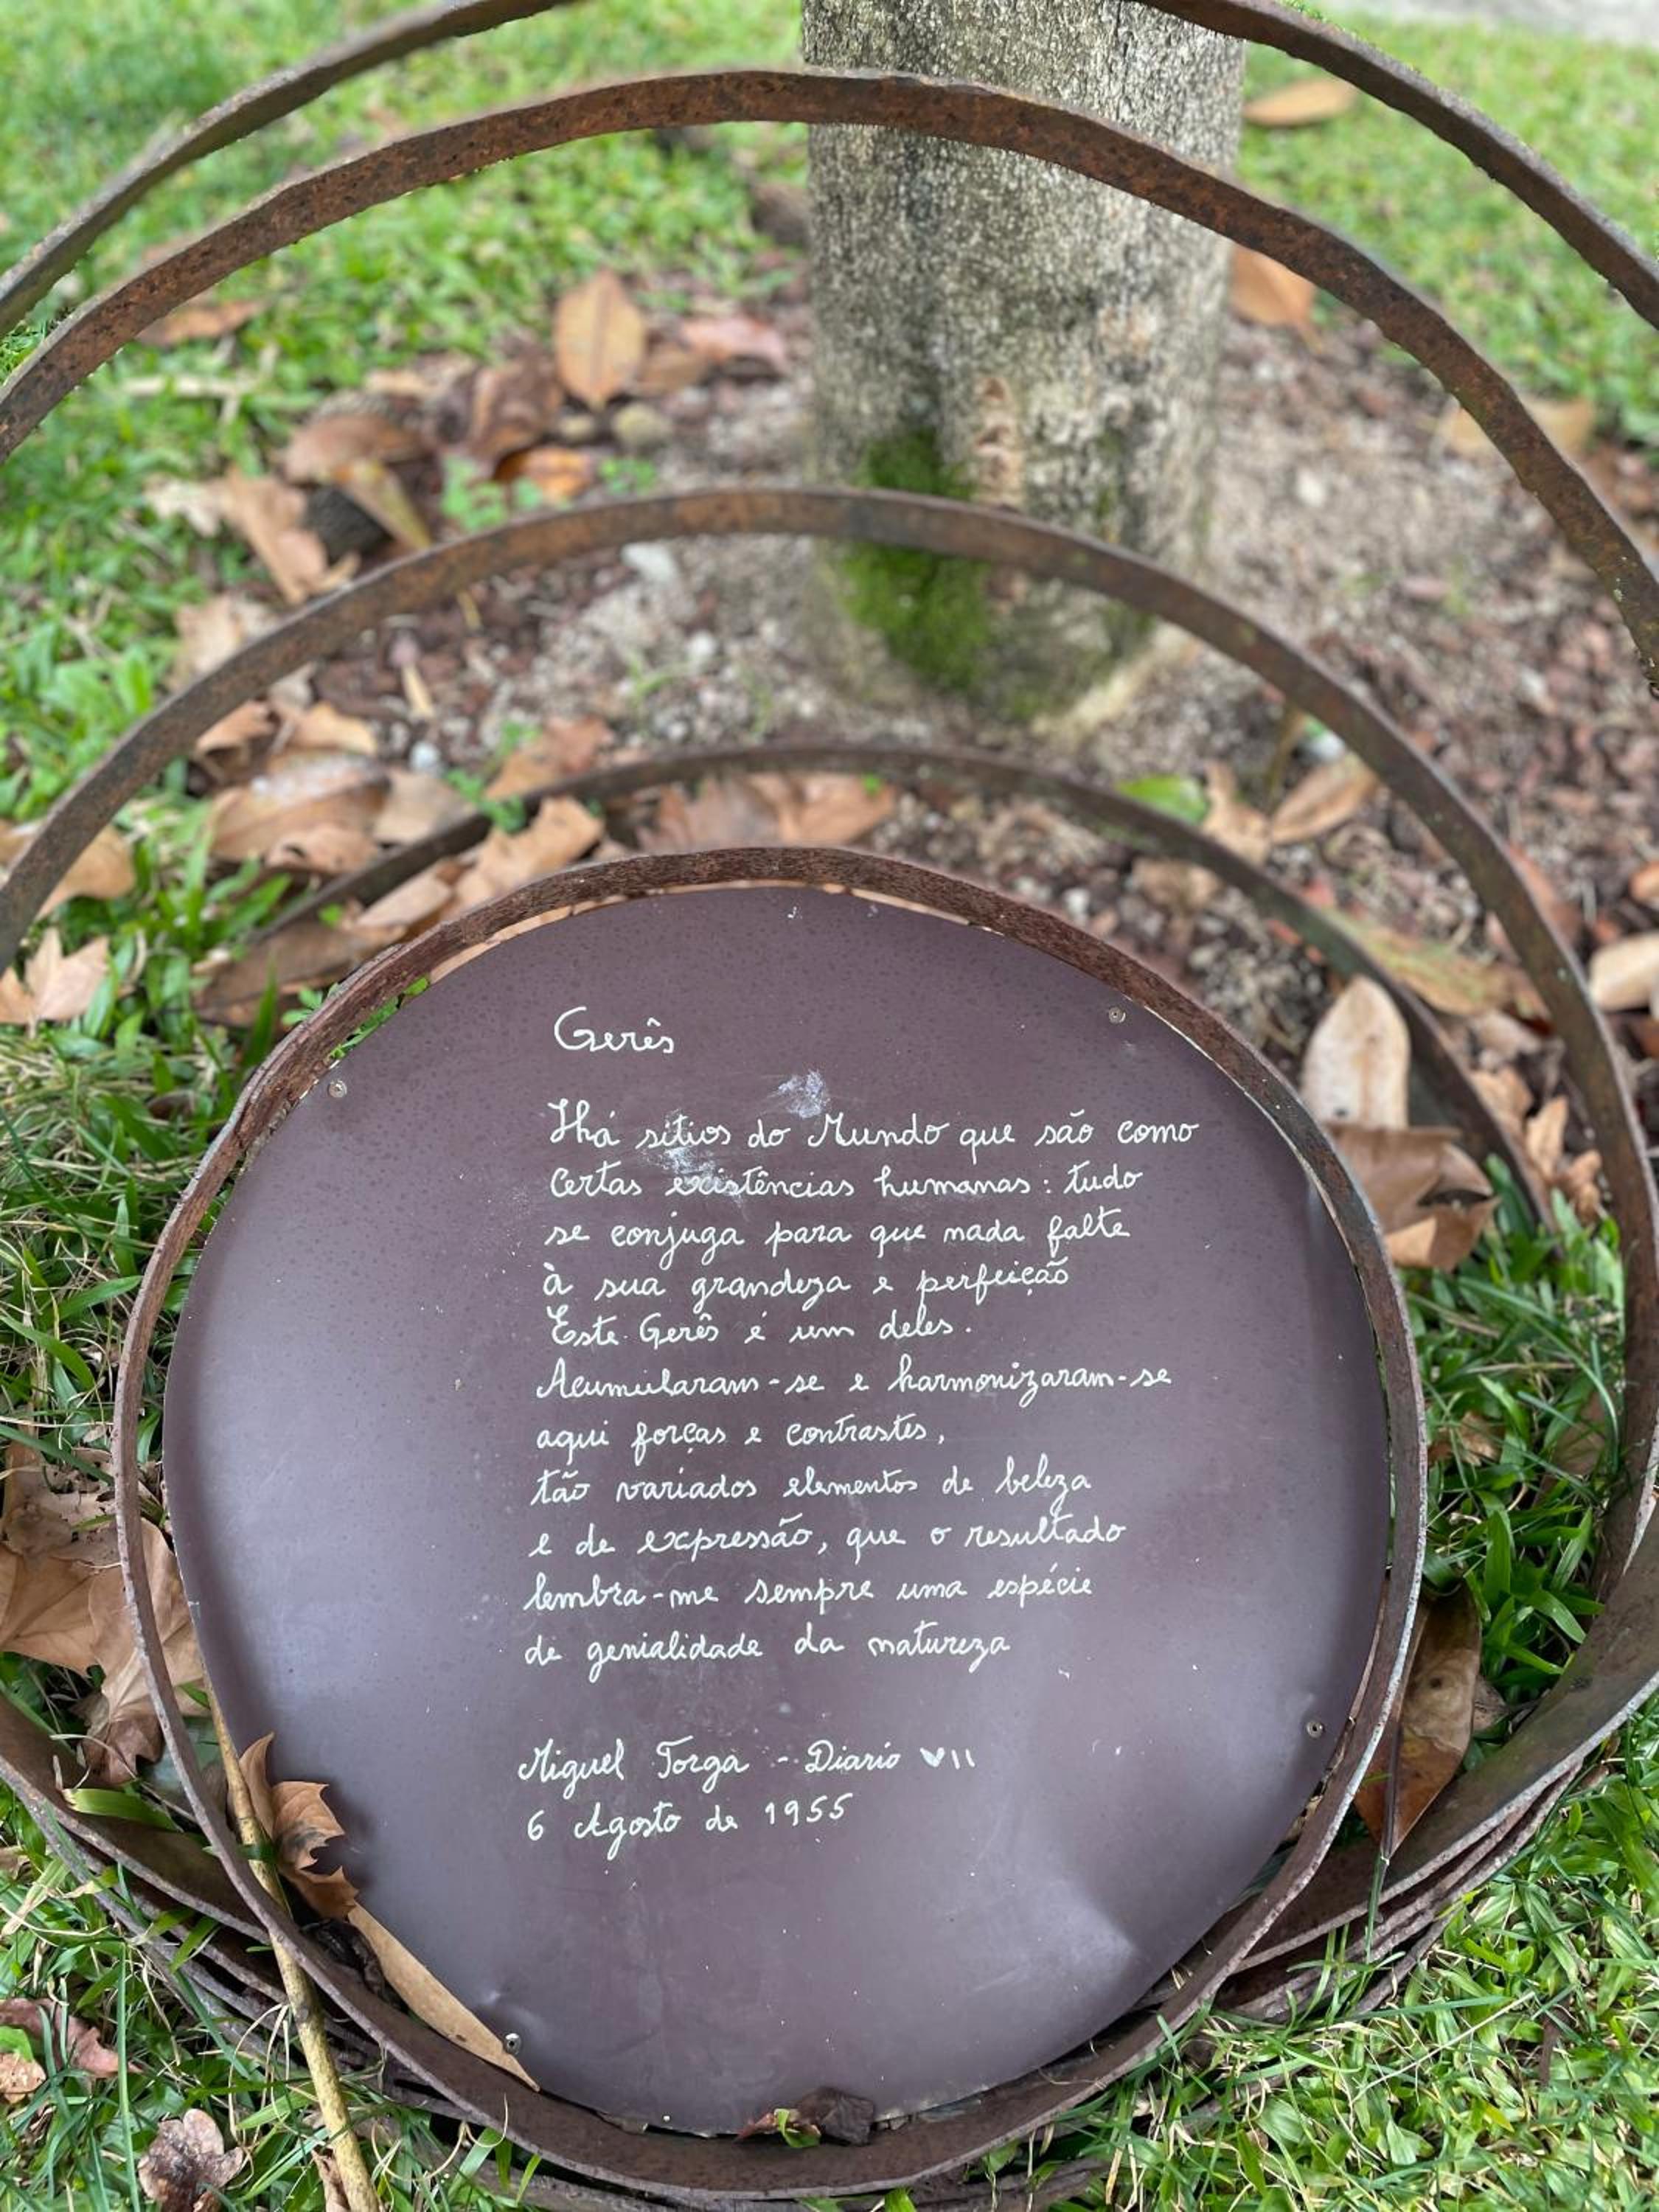 Gerês
Há sítios do Mundo que são como
certas existências humanas: tudo
se conjuga para que nada falte
à sua grandeza e perfeição
Este Gerês é um deles.
Acumularam-se e harmonizaram-se
aqui forças e contrastes,
tão variados elementos de beleza
e de expressão, que o resultado
lembra-me sempre uma espécie
de genialidade da natureza
Miguel Torga - Diario VII
6 Agosto de 1955